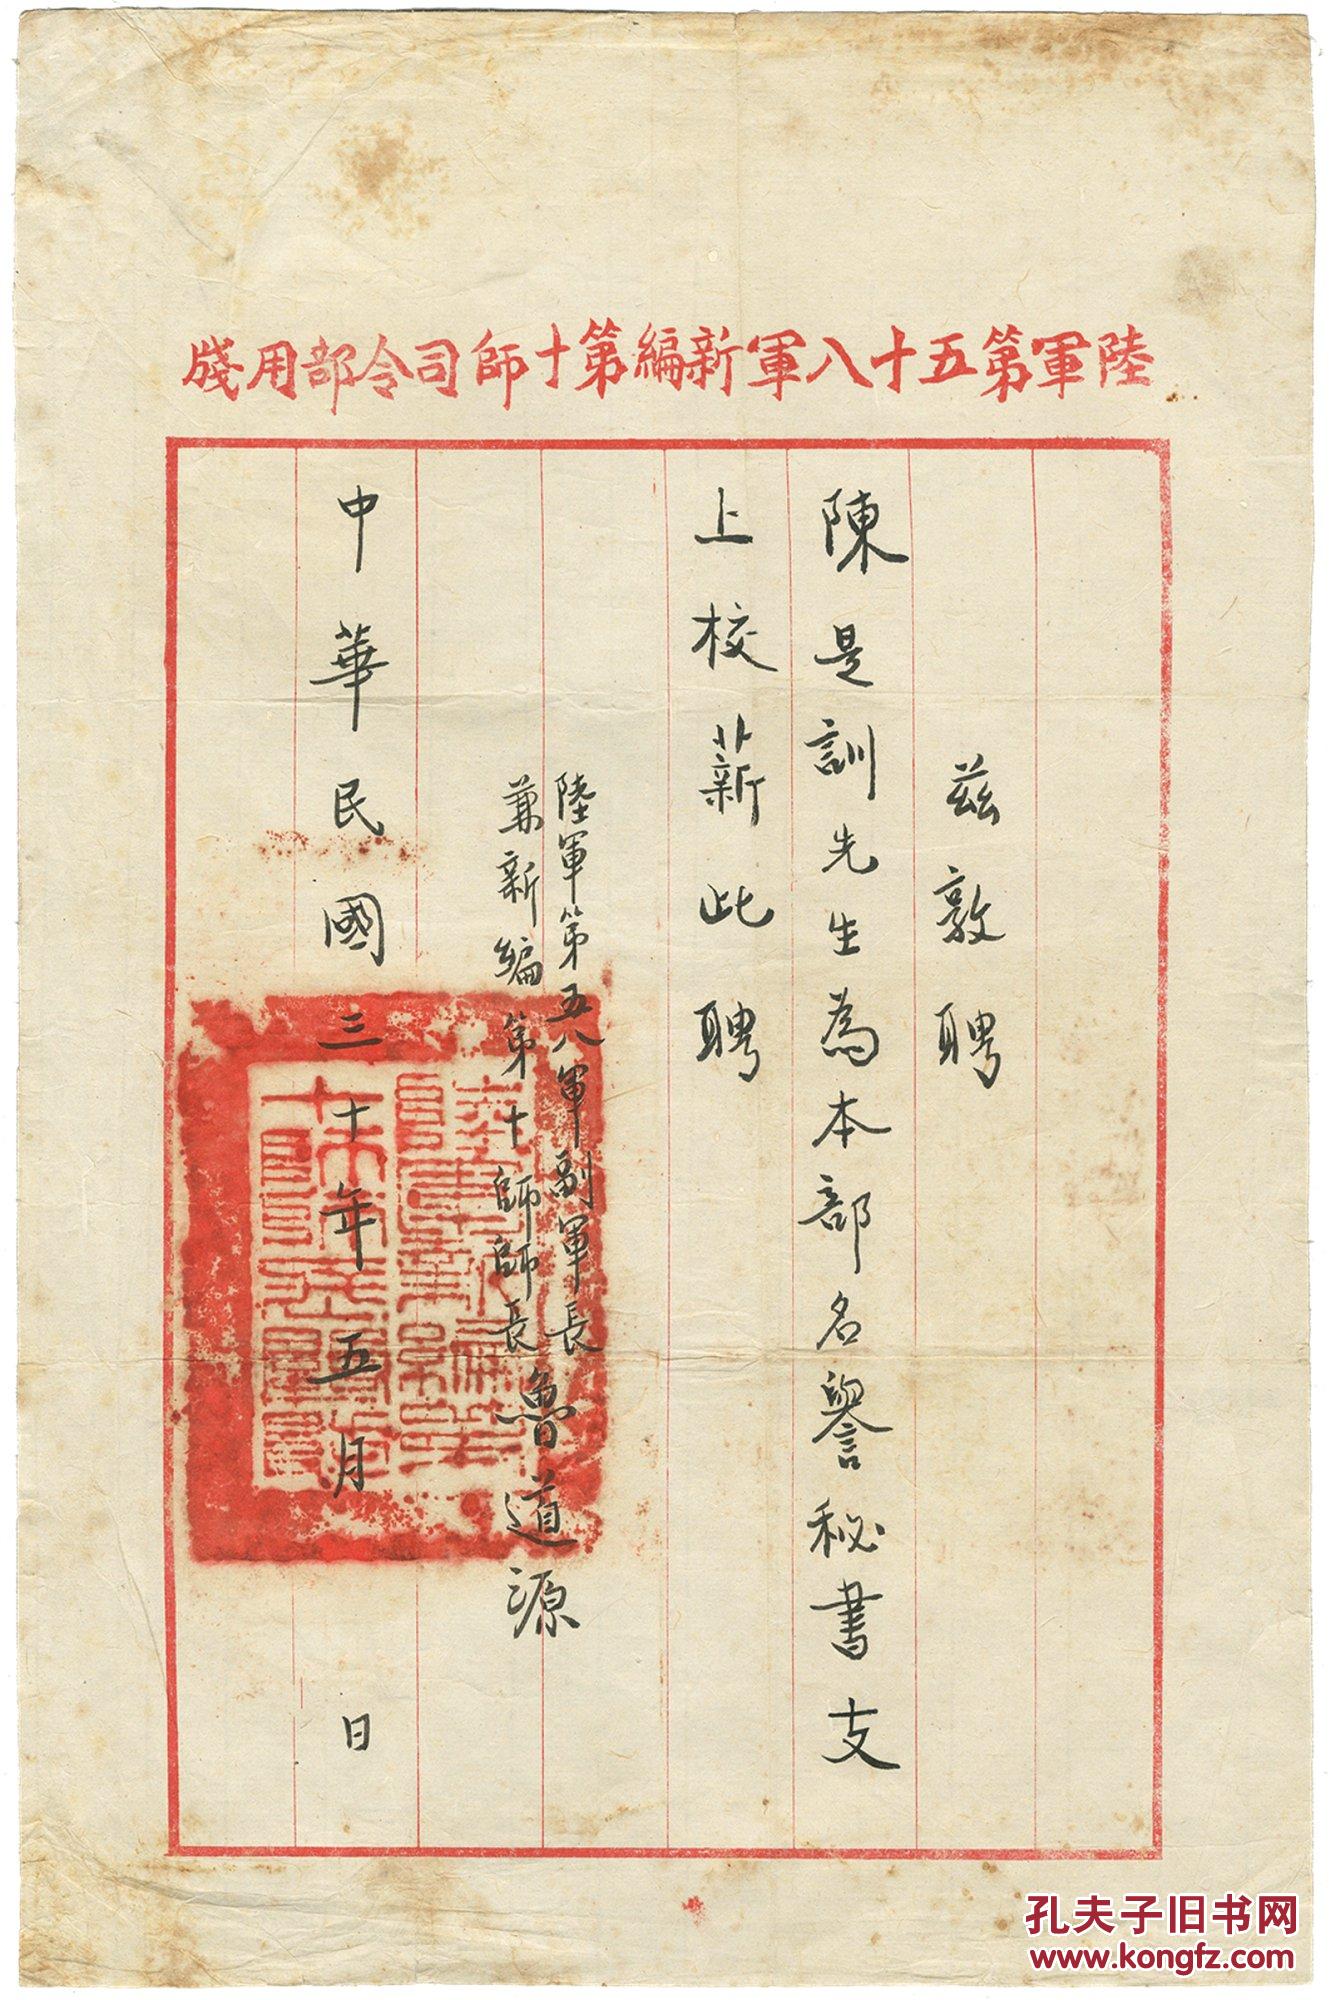 陸軍第五十八軍新編第十師司令部用牋
茲敦聘
陳是訓先生為本部名譽秘書支
上校薪此聘
陸軍第五八軍副軍長
兼新編第十師師長魯道源
中華民國三十年五月 日
孔夫子旧书网
www.kongfz.com